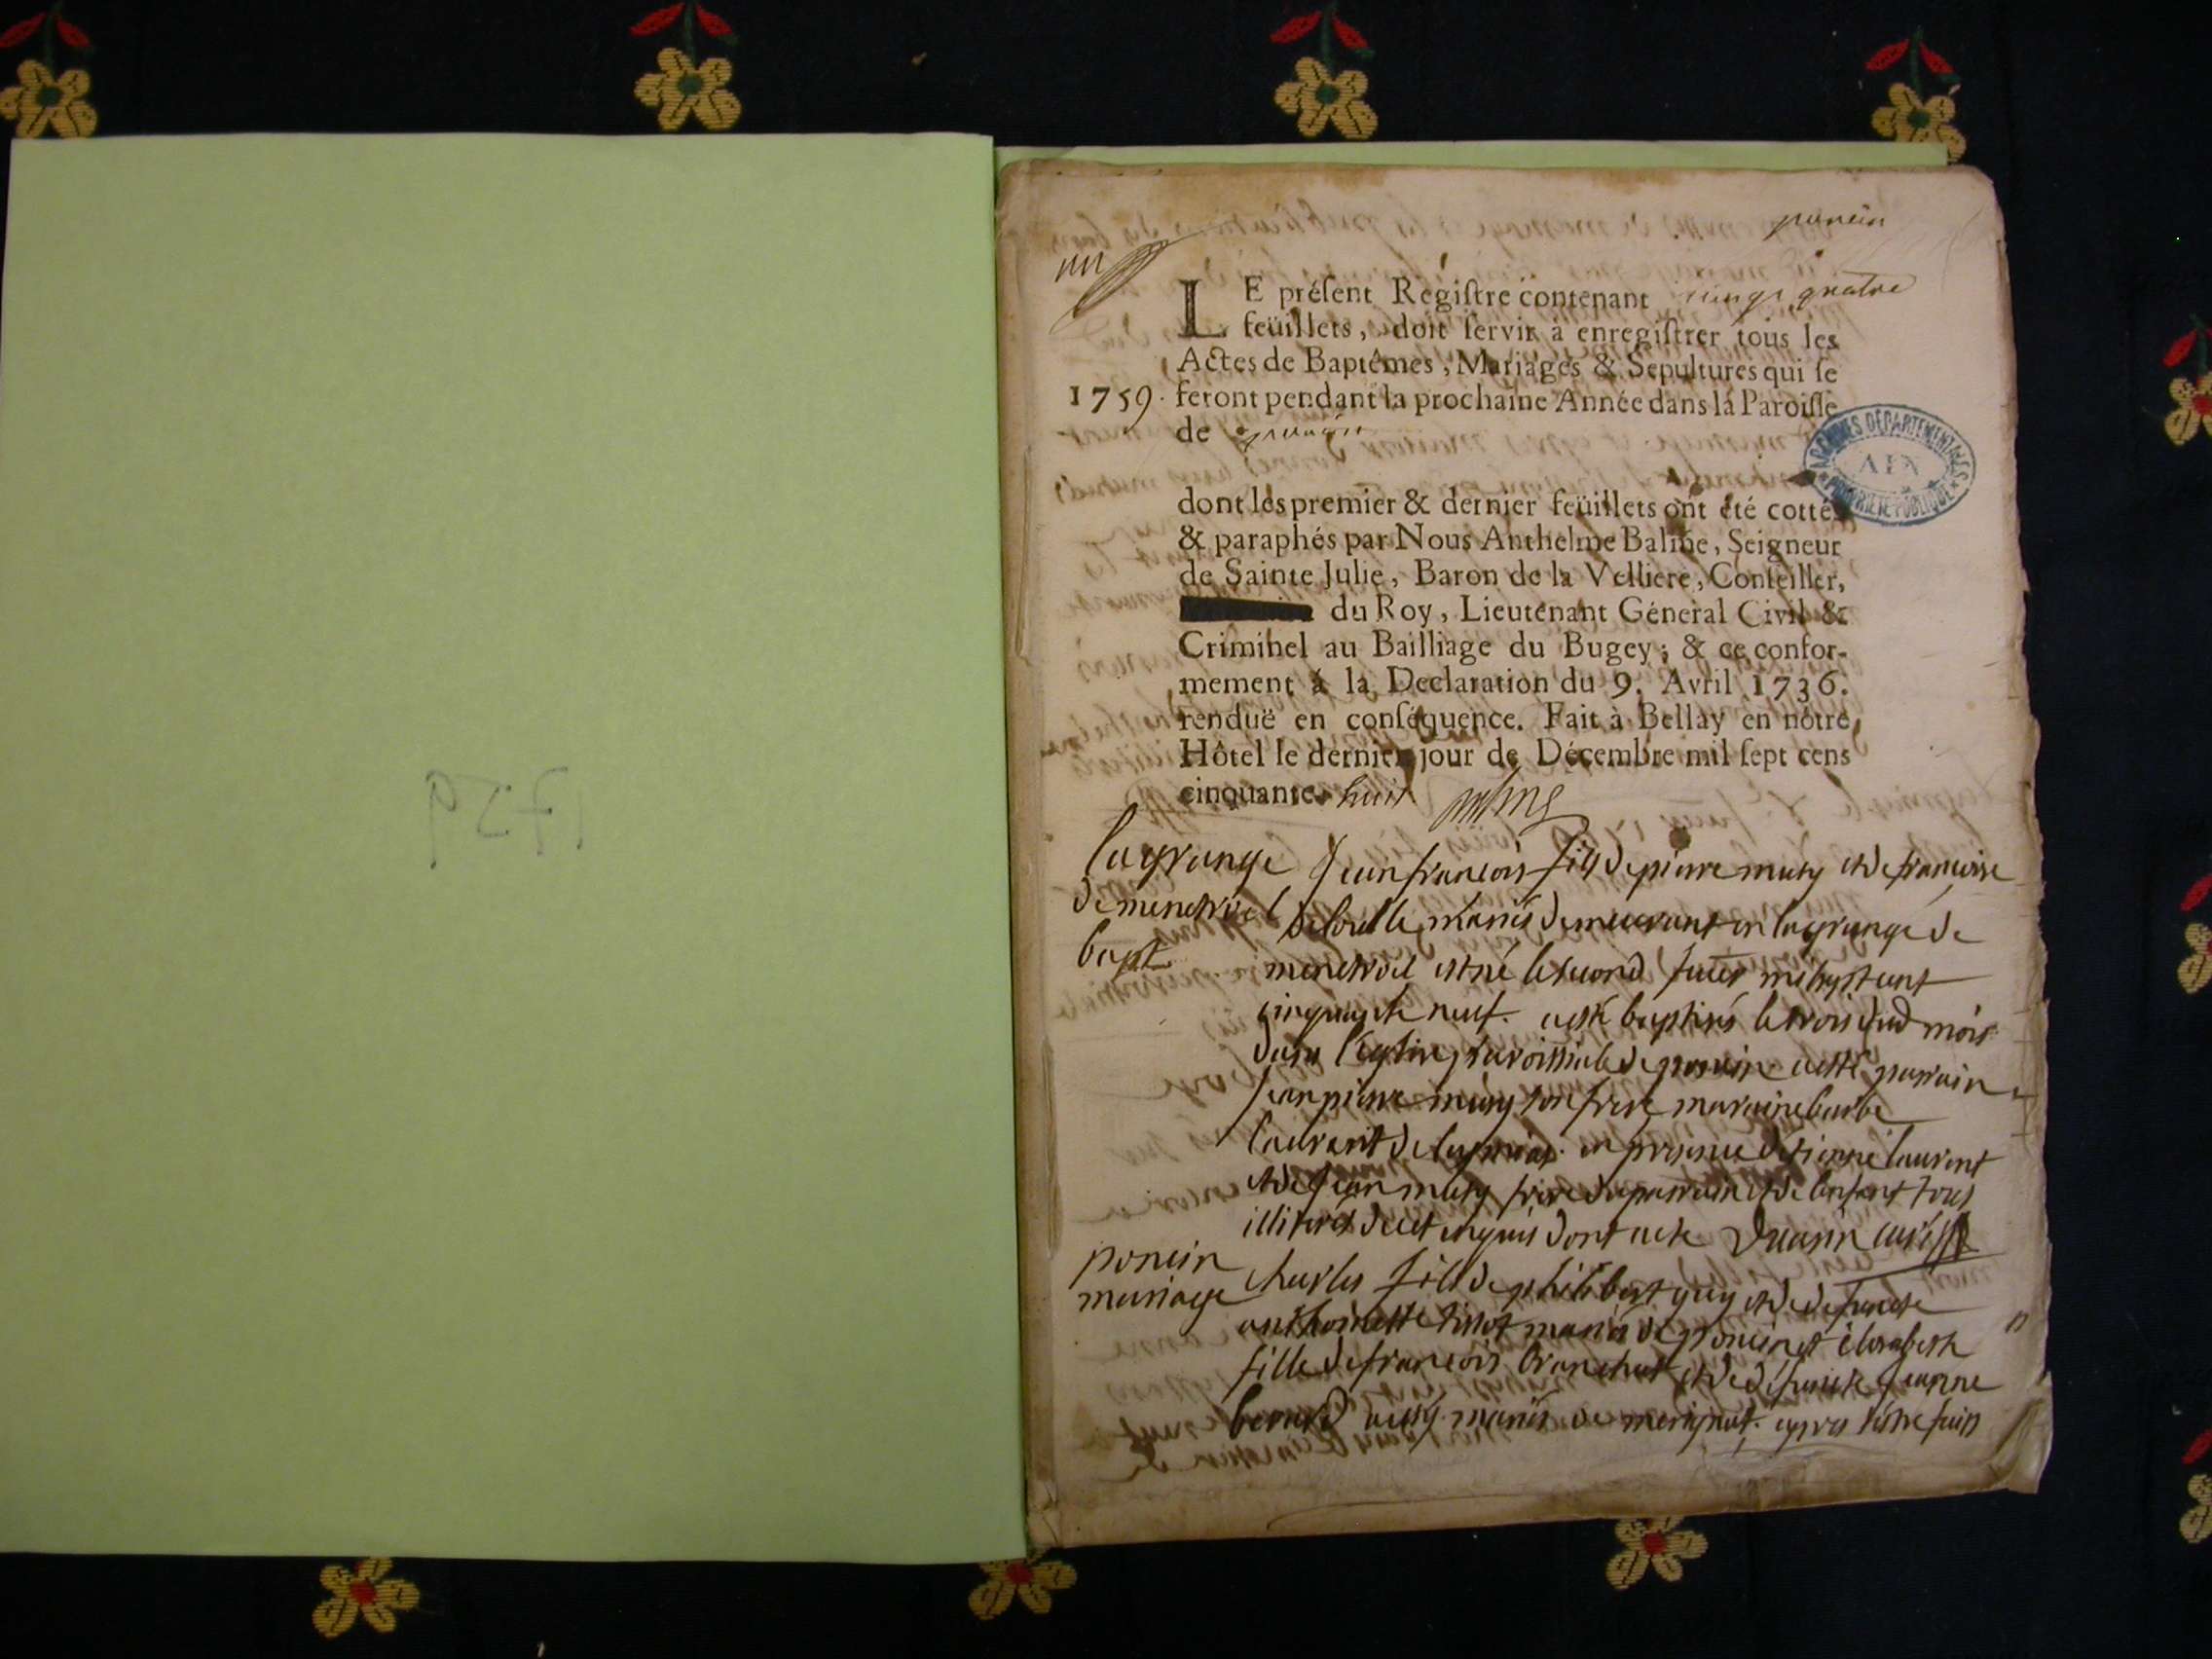 poncin
un
LE préſent Regiſtre contenant vingt quatre
feüillets, doit ſervir à enregiſtrer tous les
Actes de Baptêmes, Mariages & Sepultures qui ſe
1759. feront pendant la prochaine Année dans la Paroiſſe
de poncin
ARCHIVES DÉPARTEMENTALES
AIN
PROPRIÉTÉ PUBLIQUE
dont les premier & dernier feüillets ont été cottés
& paraphés par Nous Anthelme Balme, Seigneur
de Sainte Julie, Baron de la Velliere, Conſeiller,
du Roy, Lieutenant Géneral Civil &
Criminel au Bailliage du Bugey; & ce confor-
mement à la Declaration du 9. Avril 1736.
renduë en conſéquence. Fait à Bellay en nôtre
Hôtel le dernier jour de Décembre mil ſept cens
cinquante huit
1759
lagrange
de menestruel
bapt
Jean francois fils de pierre mury et de francoise
mariés demeurant en lagrange de
menestruel est né le second mil sept cent
cinquante neuf. a esté baptisés le trois dud mois
dans l'eglise paroissiale de poncin a esté parrain
Jean pierre mury son frere maraine barbe
laurant de en presence d'etienne laurent
et de Jean mury frere du parrain et de l'enfant tous
illiterés de ce enquis dont acte curé
poncin
mariage
charles fils de philibert guy et de defuncte
anthoinette tissot mariés de poncin et elisabeth
fille de francois branchut et de defuncte Jeanne
berard aussy mariés de merignat. apres s'estre faits